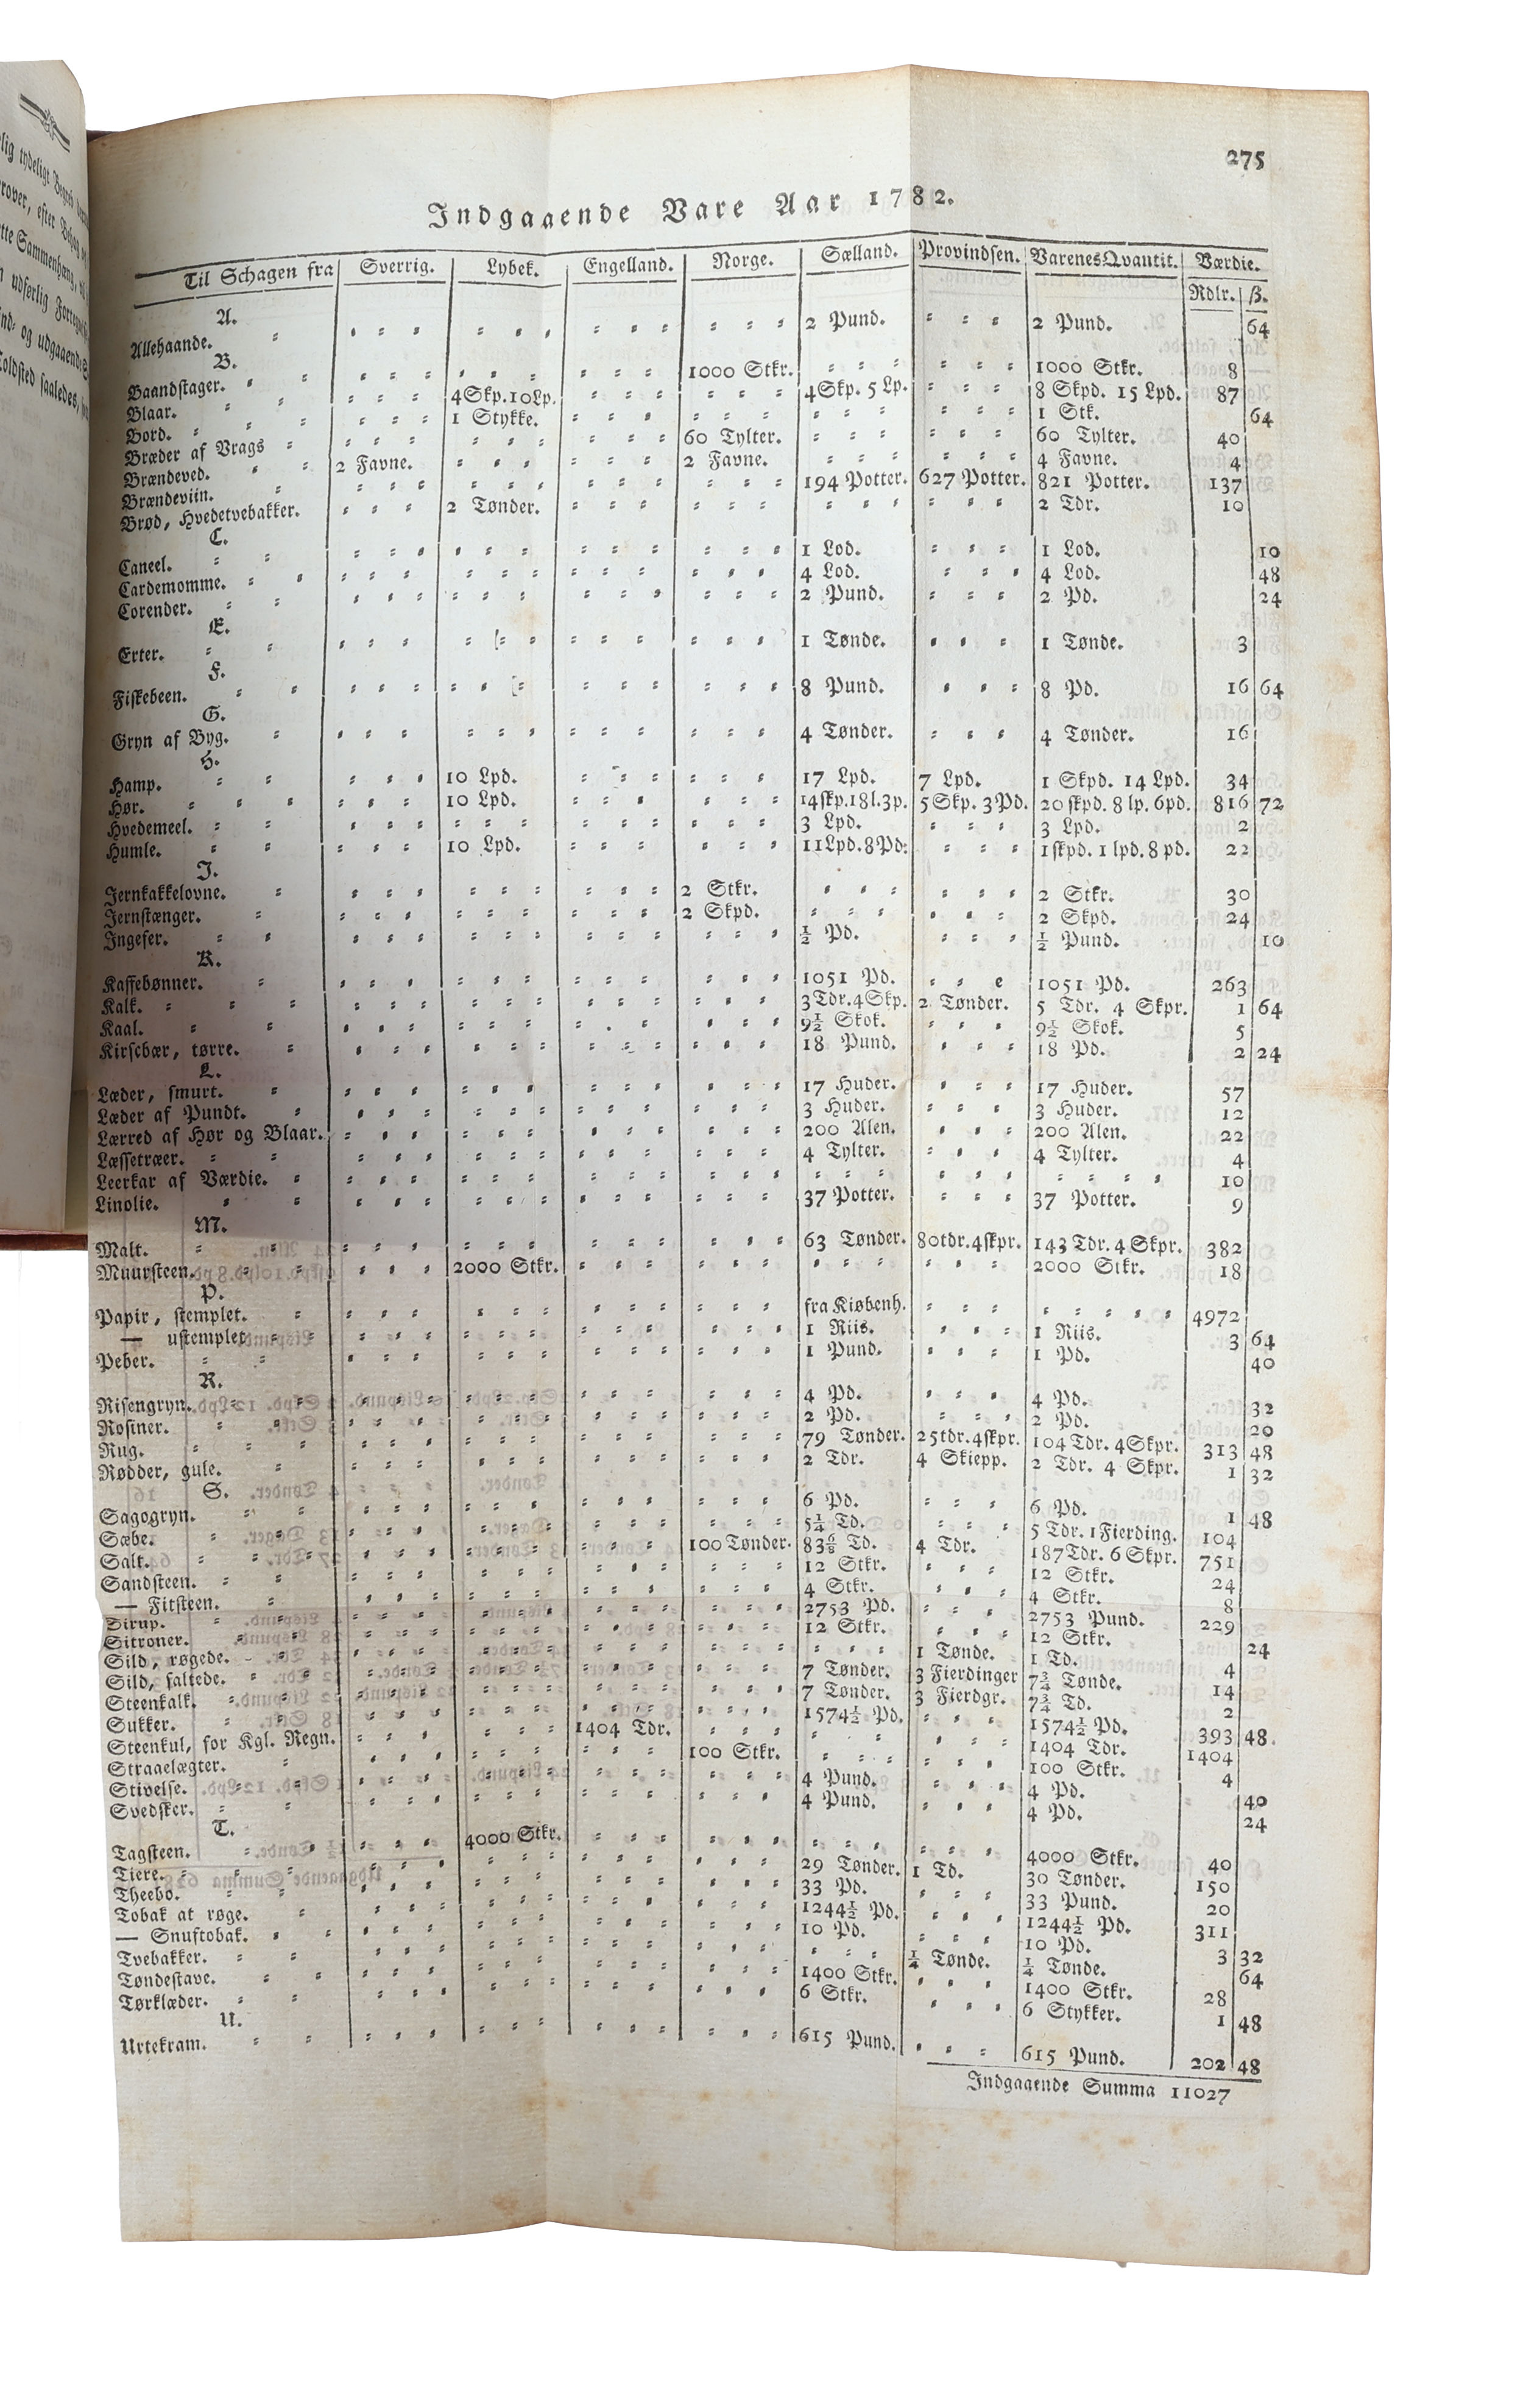 275
Indgaaende Vare Aar 1782.
Til Schagen fra | Sverrig. | Lybek. | Engelland. | Norge. | Sælland. | Provindsen. | Varenes Qvantit. | Værdie.
Rdlr. | ß.
A.
Allehaande. 2 Pund. 2 Pund. 64
B.
Baandstager. 1000 Stkr. 1000 Stkr. 8
Blaar. 4Skp.10Lp. 4Skp. 5 Lp. 8 Skpd. 15 Lpd. 87
Bord. 1 Stykke. 1 Stk. 64
Bræder af Vrags 60 Tylter. 60 Tylter. 40
Brændeved. 2 Favne. 2 Favne. 4 Favne. 4
Brændeviin. 194 Potter. 627 Potter. 821 Potter. 137
Brød, Hvedetvebakker. 2 Tønder. 2 Tdr. 10
C.
Caneel. 1 Lod. 1 Lod. 10
Cardemomme. 4 Lod. 4 Lod. 48
Corender. 2 Pund. 2 Pd. 24
E.
Erter. 1 Tønde. 1 Tønde. 3
F.
Fiskebeen. 8 Pund. 8 Pd. 16 64
G.
Gryn af Byg. 4 Tønder. 4 Tønder. 16
H.
Hamp. 10 Lpd. 17 Lpd. 7 Lpd. 1 Skpd. 14 Lpd. 34
Hør. 10 Lpd. 14skp.18l.3p. 5Skp. 3Pd. 20skpd. 8lp. 6pd. 816 72
Hvedemeel. 3 Lpd. 3 Lpd. 2
Humle. 10 Lpd. 11Lpd.8Pd: 1skpd. 1lpd. 8pd. 22
J.
Jernkakkelovne. 2 Stkr. 2 Stkr. 30
Jernstænger. 2 Skpd. 2 Skpd. 24
Ingefer. ½ Pd. ½ Pund. 10
K.
Kaffebønner. 1051 Pd. 1051 Pd. 263
Kalk. 3Tdr.4Skp. 2 Tønder. 5 Tdr. 4 Skpr. 1 64
Kaal. 9½ Skok. 9½ Skok. 5
Kirsebær, tørre. 18 Pund. 18 Pd. 2 24
L.
Læder, smurt. 17 Huder. 17 Huder. 57
Læder af Pundt. 3 Huder. 3 Huder. 12
Lærred af Hør og Blaar. 200 Alen. 200 Alen. 22
Læssetræer. 4 Tylter. 4 Tylter. 4
Leerkar af Værdie. 10
Linolie. 37 Potter. 37 Potter. 9
M.
Malt. 63 Tønder. 80tdr.4skpr. 143Tdr.4Skpr. 382
Muursteen. 2000 Stkr. 2000 Stkr. 18
P.
Papir, stemplet. fra Kiøbenh. 4972
— ustemplet 1 Riis. 1 Riis. 3 64
Peber. 1 Pund. 1 Pd. 40
R.
Risengryn. 4 Pd. 4 Pd. 32
Rosiner. 2 Pd. 2 Pd. 20
Rug. 79 Tønder. 25tdr.4skpr. 104Tdr. 4Skpr. 313 48
Rødder, gule. 2 Tdr. 4 Skiepp. 2 Tdr. 4 Skpr. 1 32
S.
Sagogryn. 6 Pd. 6 Pd. 1 48
Sæbe. 5¼ Td. 5 Tdr. 1Fierding. 104
Salt. 100 Tønder. 83 6/8 Td. 4 Tdr. 187Tdr. 6Skpr. 751
Sandsteen. 12 Stkr. 12 Stkr. 24
— Fitsteen. 4 Stkr. 4 Stkr. 8
Sirup. 2753 Pd. 2753 Pund. 229
Sitroner. 12 Stkr. 12 Stkr. 24
Sild, røgede. 1 Tønde. 1 Td. 4
Sild, saltede. 7 Tønder. 3 Fierdinger 7¾ Tønde. 14
Steenkalk. 7 Tønder. 3 Fierdgr. 7¾ Td. 2
Sukker. 1574½ Pd. 1574½ Pd. 393 48.
Steenkul, for Kgl. Regn. 1404 Tdr. 1404 Tdr. 1404
Straaelægter. 100 Stkr. 100 Stkr. 4
Stivelse. 4 Pund. 4 Pd. 40
Svedsker. 4 Pund. 4 Pd. 24
T.
Tagsteen. 4000 Stkr. 4000 Stkr. 40
Tiere. 29 Tønder. 1 Td. 30 Tønder. 150
Theebo. 33 Pd. 33 Pund. 20
Tobak at røge. 1244½ Pd. 1244½ Pd. 311
— Snuftobak. 10 Pd. 10 Pd. 3 32
Tvebakker. ¼ Tønde. ¼ Tønde. 64
Tøndestave. 1400 Stkr. 1400 Stkr. 28
Tørklæder. 6 Stkr. 6 Stykker. 1 48
U.
Urtekram. 615 Pund. 615 Pund. 202 48
Indgaaende Summa 11027